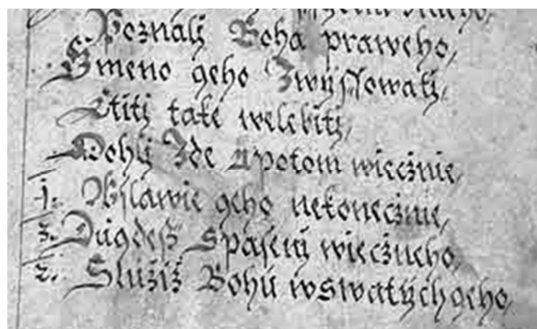 Poznalj Boha praweho,
Gmeno geho Zwysslowatj,
Cztitj také welebitj,
Mohlj Zde a potom wiecznie,
1. Oslawie geho nekonecznie,
3. Dúgdess Spasenj wieczneho,
2. Slúžiž Bohú wswatých geho,